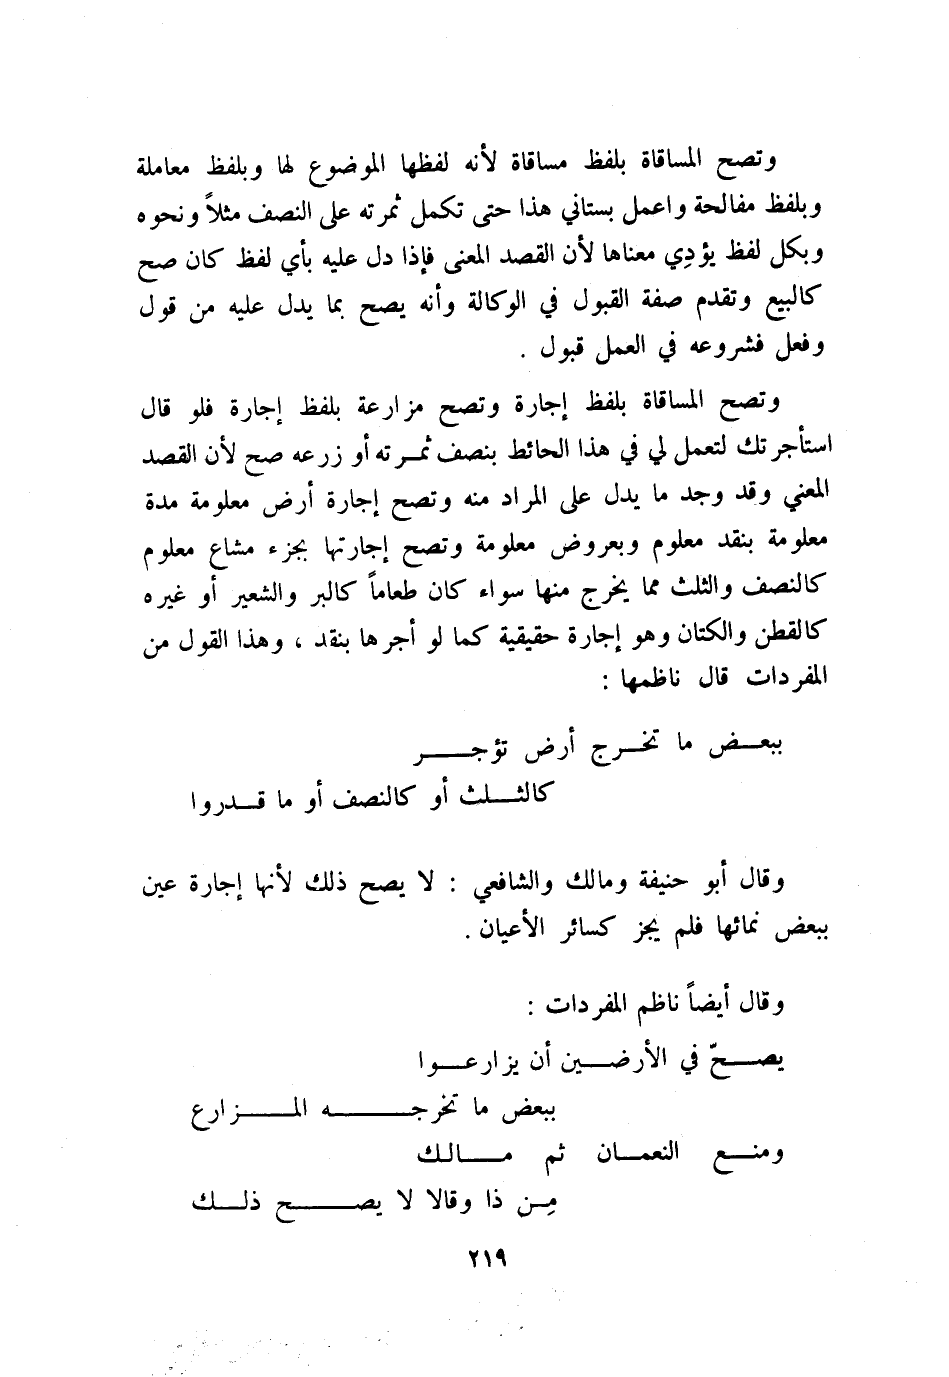 وتصح المساقاة بلفظ مساقاة لأنه لفظها الموضوع لها وبلفظ معاملة
وبلفظ مفالحة واعمل بستاني هذا حتى تكمل ثمرته على النصف مثلاً ونحوه
وبكل لفظ يؤدِي معناها لأن القصد المعنى فإذا دل عليه بأي لفظ كان صح
كالبيع وتقدم صفة القبول في الوكالة وأنه يصح بما يدل عليه من قول
وفعل فشروعه في العمل قبول .
وتصح المساقاة بلفظ إجارة وتصح مزارعة بلفظ إجارة فلو قال
استأجرتك لتعمل لي في هذا الحائط بنصف ثمرته أو زرعه صح لأن القصد
المعني وقد وجد ما يدل على المراد منه وتصح إجارة أرض معلومة مدة
معلومة بنقد معلوم وبعروض معلومة وتصح إجارتها بجزء مشاع معلوم
كالنصف والثلث مما يخرج منها سواء كان طعاماً كالبر والشعير أو غيره
كالقطن والكتان وهو إجارة حقيقية كما لو أجرها بنقد ، وهذا القول من
المفردات قال ناظمها :
ببعض ما تخرج أرض تؤجر
كالثلث أو كالنصف أو ما قدروا
وقال أبو حنيفة ومالك والشافعي : لا يصح ذلك لأنها إجارة عين
ببعض نمائها فلم يجز كسائر الأعيان .
وقال أيضاً ناظم المفردات :
يصحّ في الأرضين أن يزارعوا
ببعض ما تخرجه المزارع
ومنع النعمان ثم مالك
مِن ذا وقالا لا يصح ذلك
٢١٩